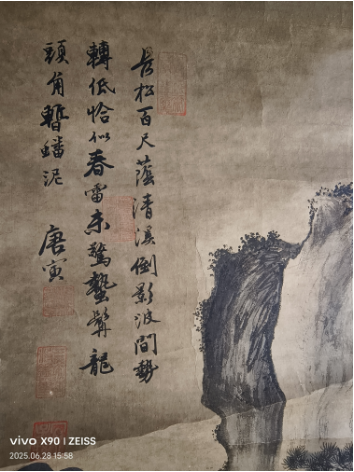 長松百尺蔭清溪倒影波間勢
轉低恰似春雷未驚蟄髯龍
頭角暫蟠泥
唐寅
vivo X90 | ZEISS
2025.06.28 15:58